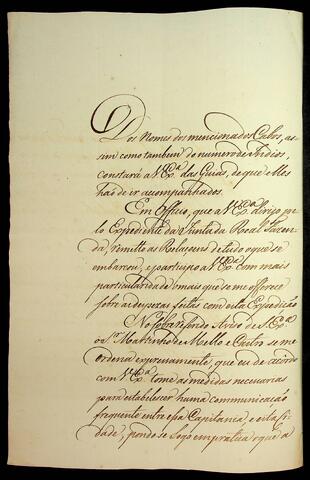 Dos Nomes dos mencionados Cabos, as-
sim como tambem do numero de Indios,
constará a V. Exa. das Guias, de que elles
hão de ir acompanhados.
Em Officio, que a V. Exa. dirijo pe-
lo Expediente da Junta da Real Fazen-
da, remetto as Relaçoens de tudo o que se
embarcou, e participo a V. Exa. com mais
particularidade o mais que se me offerece
sobre as despezas feitas com esta Expedição
No sobre referido Aviso de S. Exa.
o Sr. Martinho de Mello e Castro se me
ordena expressamente, que eu de acordo
com V. Exa. tome as medidas necessarias
para estabelecer huma communicação
frequente entre essa Capitania, e esta Ci-
dade, pondo se logo em pratica o que a